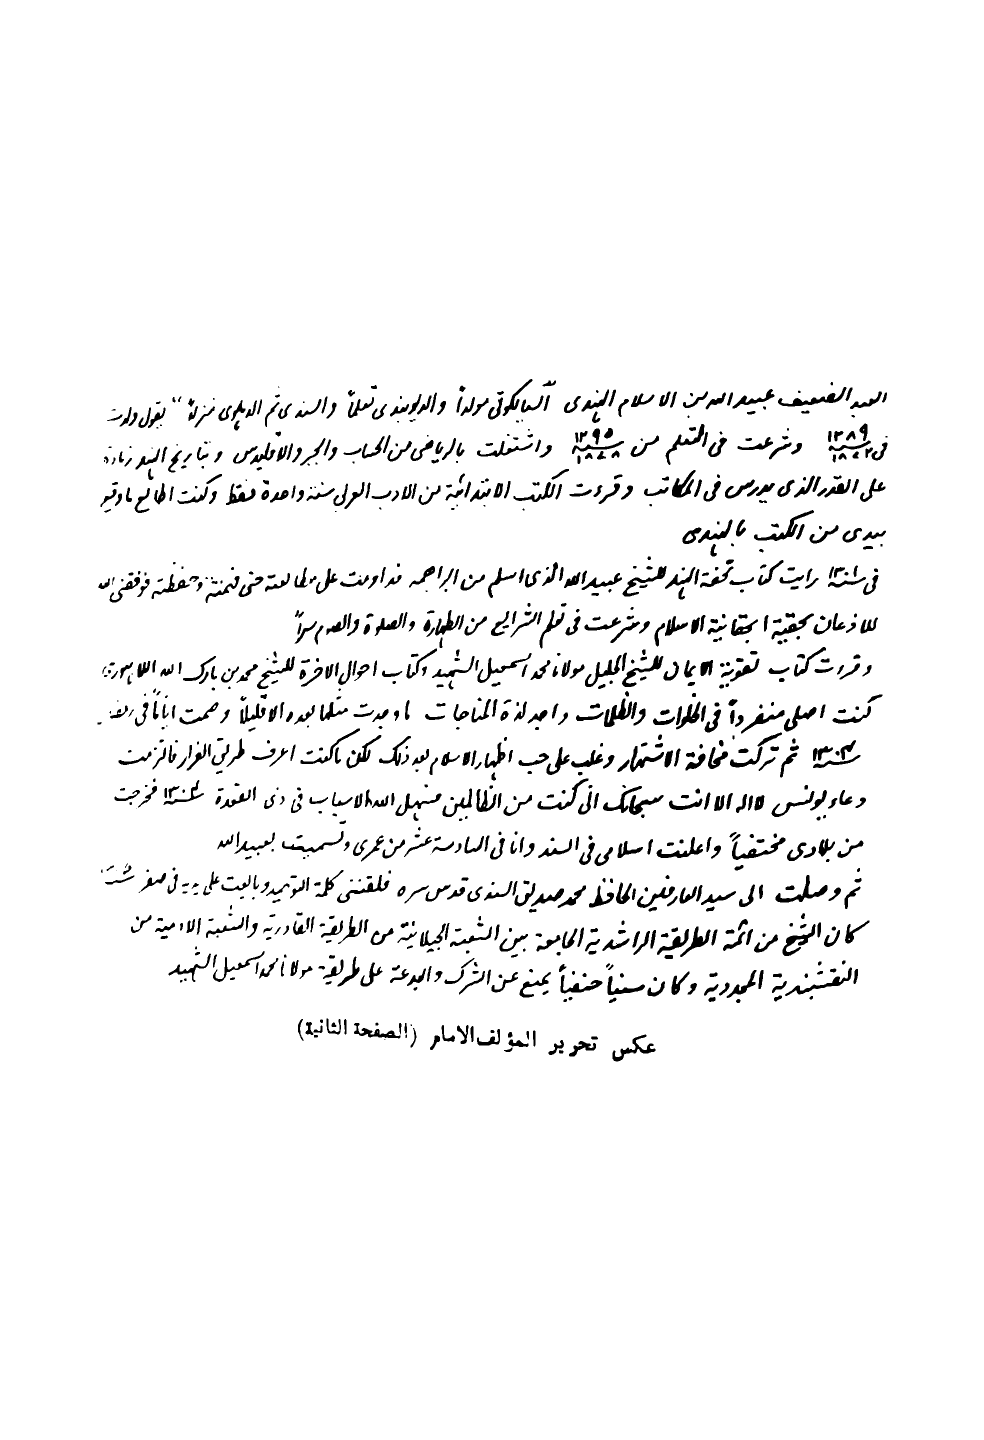 العبد الضعيف عبيد الله بن الاسلام الهندى السيالكوتى مولداً والديوبندى تعلماً والسندى ثم الدهلوى منزلاً يقول ولدت
فى سنة ١٢٨٩ ١٨٧٢ وشرعت فى التعلم من سنة ١٢٩٥ ١٨٧٨ واشتغلت بالرياضى من الحساب والجبر والاقليدس وبتاريخ الهند زيادة
على القدر الذى يدرس فى المكاتب وقرءت الكتب الابتدائية من الادب العربى سنة واحدة فقط وكنت اطالع ما وقع
بيدى من الكتب بالهندى
فى سنة ١٣٠١ رايت كتاب تحفة الهند للشيخ عبيد الله الذى اسلم من البراهمه فداومت على مطالعته حتى فهمته وحفظته فوفقنى الله
للاذعان بحقية الاسلام وشرعت فى تعلم الشرايع من الطهارة والصلوة والصوم سراً
وقرءت كتاب تقوية الايمان للشيخ الجليل مولانا محمد اسمعيل الشهيد وكتاب احوال الاخرة للشيخ محمد بن بارك الله اللاهورى
كنت اصلى منفرداً فى الخلوات والظلمات واجد لذة المناجات ما وجدت مثلها بعده الا قليلاً وصمت اياماً فى رمضان
سنة ١٣٠٣ ثم تركت مخافة الاشتهار وغلب على حب اظهار الاسلام بعد ذلك لكن ما كنت اعرف طريق الفرار فالتزمت
دعاء يونس لا اله الا انت سبحانك انى كنت من الظالمين فسهل الله الاسباب فى ذى القعدة سنة ١٣٠٤ فخرجت
من بلادى مختفياً واعلنت اسلامى فى السند وانا فى السادسة عشر من عمرى وتسميت بعبيد الله
ثم وصلت الى سيد العارفين الحافظ محمد صديق السندى قدس سره فلقننى كلمة التوحيد وبايعت على يديه فى صفر
كان الشيخ من ائمة الطريقة الراشدية الجامعة بين الشعبة الجيلانية من الطريقة القادرية والشعبة الادمية من
النقشبندية المجددية وكان سنياً حنفياً يمنع عن الشرك والبدعة على طريقة مولانا محمد اسمعيل الشهيد
عكس تحرير المؤلف الامام (الصفحة الثانية)